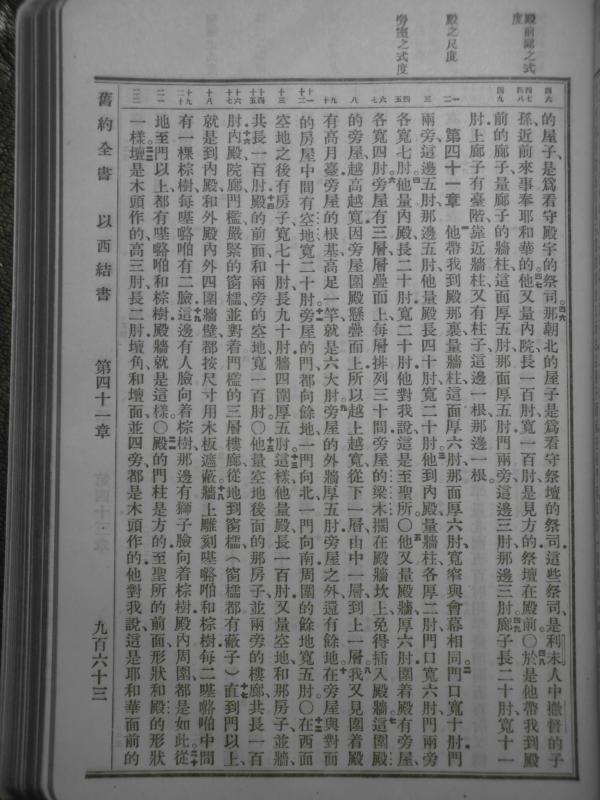 殿前廊之式度
殿之尺度
旁室之式度
的屋子是爲看守殿宇的祭司那朝北的屋子是爲看守祭壇的祭司這些祭司是利未人中撒督的子
孫近前來事奉耶和華的他又量內院長一百肘寬一百肘是見方的祭壇在殿前〇於是他帶我到殿
前的廊子量廊子的牆柱這面厚五肘那面厚五肘門兩旁這邊三肘那邊三肘廊子長二十肘寬十一
肘上廊子有臺階靠近牆柱又有柱子這邊一根那邊一根
第四十一章 他帶我到殿那裏量牆柱這面厚六肘那面厚六肘寬窄與會幕相同門口寬十肘門
兩旁這邊五肘那邊五肘他量殿長四十肘寬二十肘他到內殿量牆柱各厚二肘門口寬六肘門兩旁
各寬七肘他量內殿長二十肘寬二十肘他對我說這是至聖所〇他又量殿牆厚六肘圍着殿有旁屋
各寬四肘旁屋有三層層疊而上每層排列三十間旁屋的梁木擱在殿牆坎上免得插入殿牆這圍殿
的旁屋越高越寬因旁屋圍殿懸疊而上所以越上越寬從下一層由中一層到上一層我又見圍着殿
有高月臺旁屋的根基高足一竿就是六大肘旁屋的外牆厚五肘旁屋之外還有餘地在旁屋與對面
的房屋中間有空地寬二十肘旁屋的門都向餘地一門向北一門向南周圍的餘地寬五肘〇在西面
空地之後有房子寬七十肘長九十肘牆四圍厚五肘這樣他量殿長一百肘又量空地和那房子並牆
共長一百肘殿的前面和兩旁的空地寬一百肘〇他量空地後面的那房子並兩旁的樓廊共長一百
肘內殿院廊門檻嚴緊的窗櫺並對着門檻的三層樓廊從地到窗櫺(窗櫺都有蔽子)直到門以上
就是到內殿和外殿內外四圍牆壁都按尺寸用木板遮蔽牆上雕刻和棕樹每二中間
有一棵棕樹每有二臉這邊有人臉向着棕樹那邊有獅子臉向着棕樹殿內周圍都是如此從
地至門以上都有和棕樹殿牆就是這樣〇殿的門柱是方的至聖所的前面形狀和殿的形狀
一樣壇是木頭作的高三肘長二肘壇角和壇面並四旁都是木頭作的他對我說這是耶和華面前的
舊約全書 以西結書 第四十一章 九百六十三